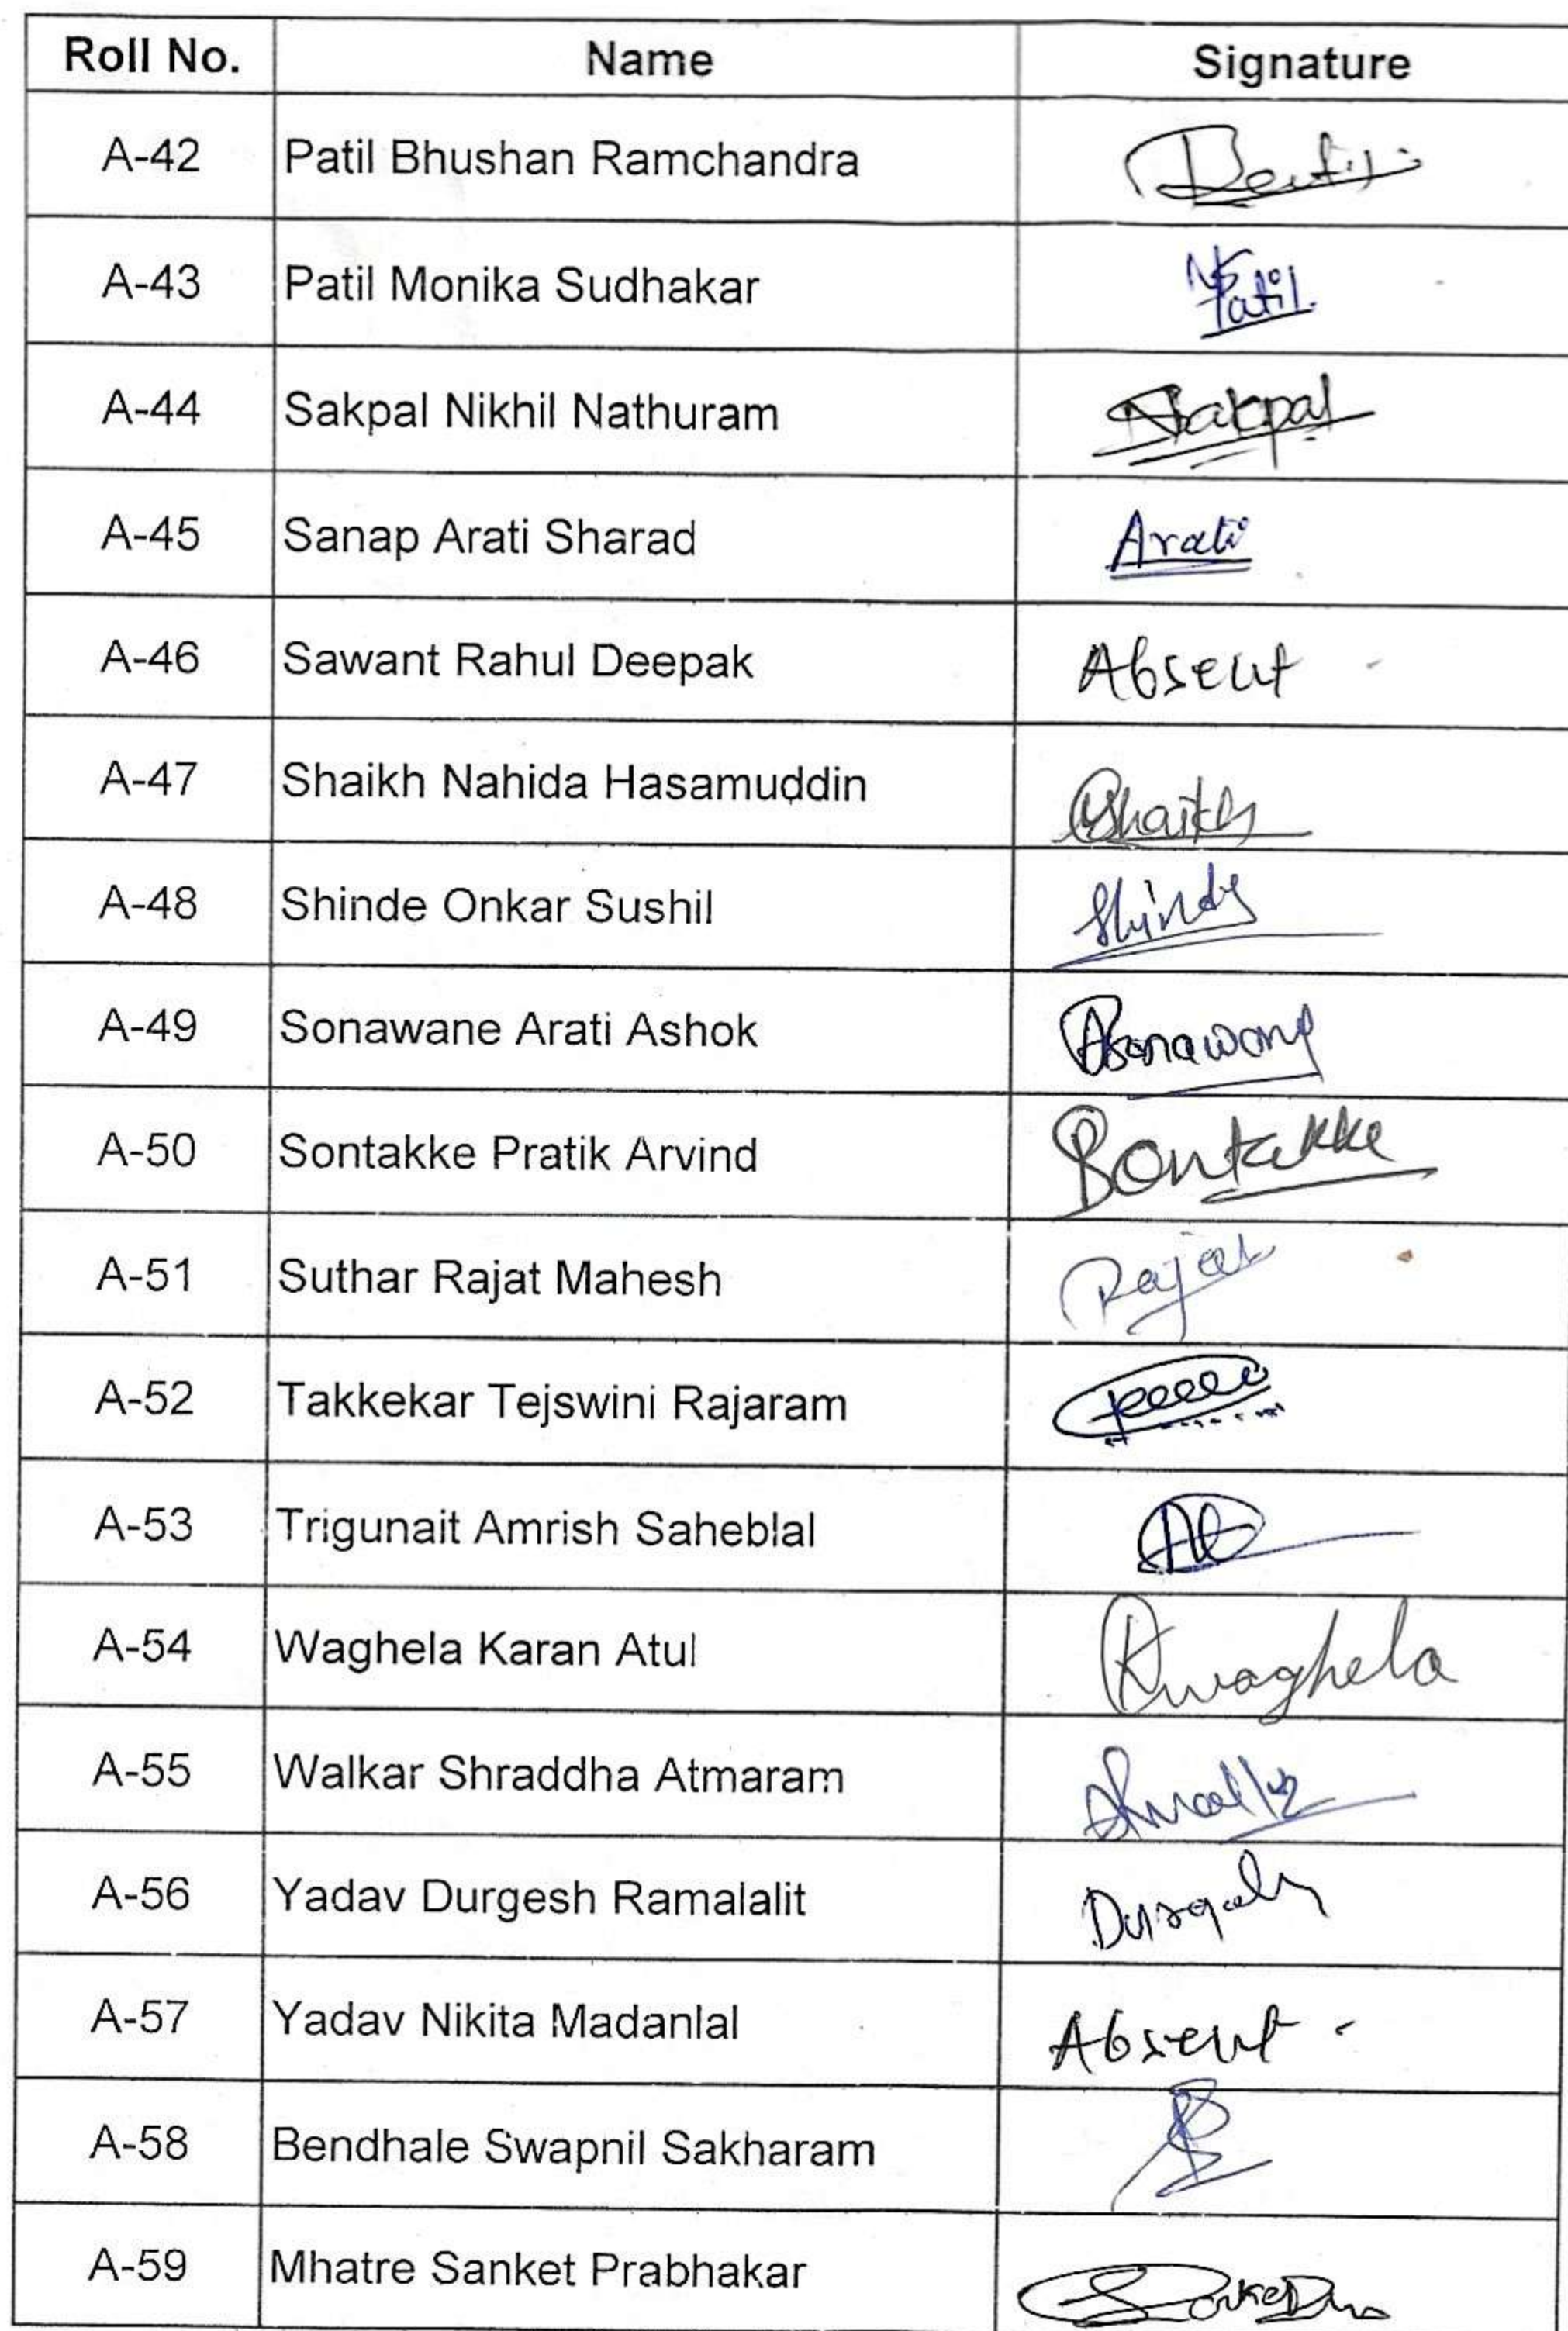 Roll No. Name Signature
A-42 Patil Bhushan Ramchandra
A-43 Patil Monika Sudhakar Patil
A-44 Sakpal Nikhil Nathuram Sakpal
A-45 Sanap Arati Sharad Arati
A-46 Sawant Rahul Deepak Absent
A-47 Shaikh Nahida Hasamuddin Shaikh
A-48 Shinde Onkar Sushil Shinde
A-49 Sonawane Arati Ashok
A-50 Sontakke Pratik Arvind Sontakke
A-51 Suthar Rajat Mahesh Rajat
A-52 Takkekar Tejswini Rajaram
A-53 Trigunait Amrish Saheblal
A-54 Waghela Karan Atul Kwaghela
A-55 Walkar Shraddha Atmaram
A-56 Yadav Durgesh Ramalalit
A-57 Yadav Nikita Madanlal Absent
A-58 Bendhale Swapnil Sakharam
A-59 Mhatre Sanket Prabhakar